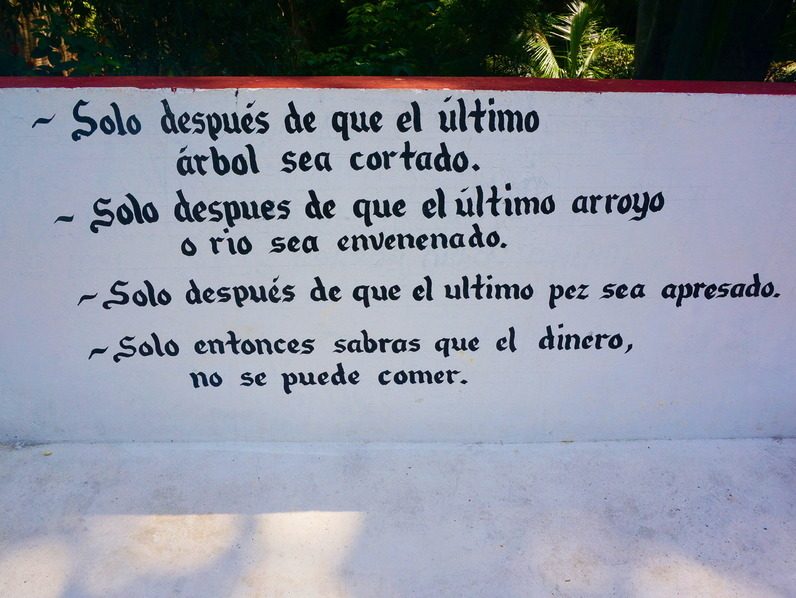 ~ Solo después de que el último
árbol sea cortado.
~ Solo despues de que el último arroyo
o rio sea envenenado.
~ Solo después de que el ultimo pez sea apresado.
~ Solo entonces sabras que el dinero,
no se puede comer.